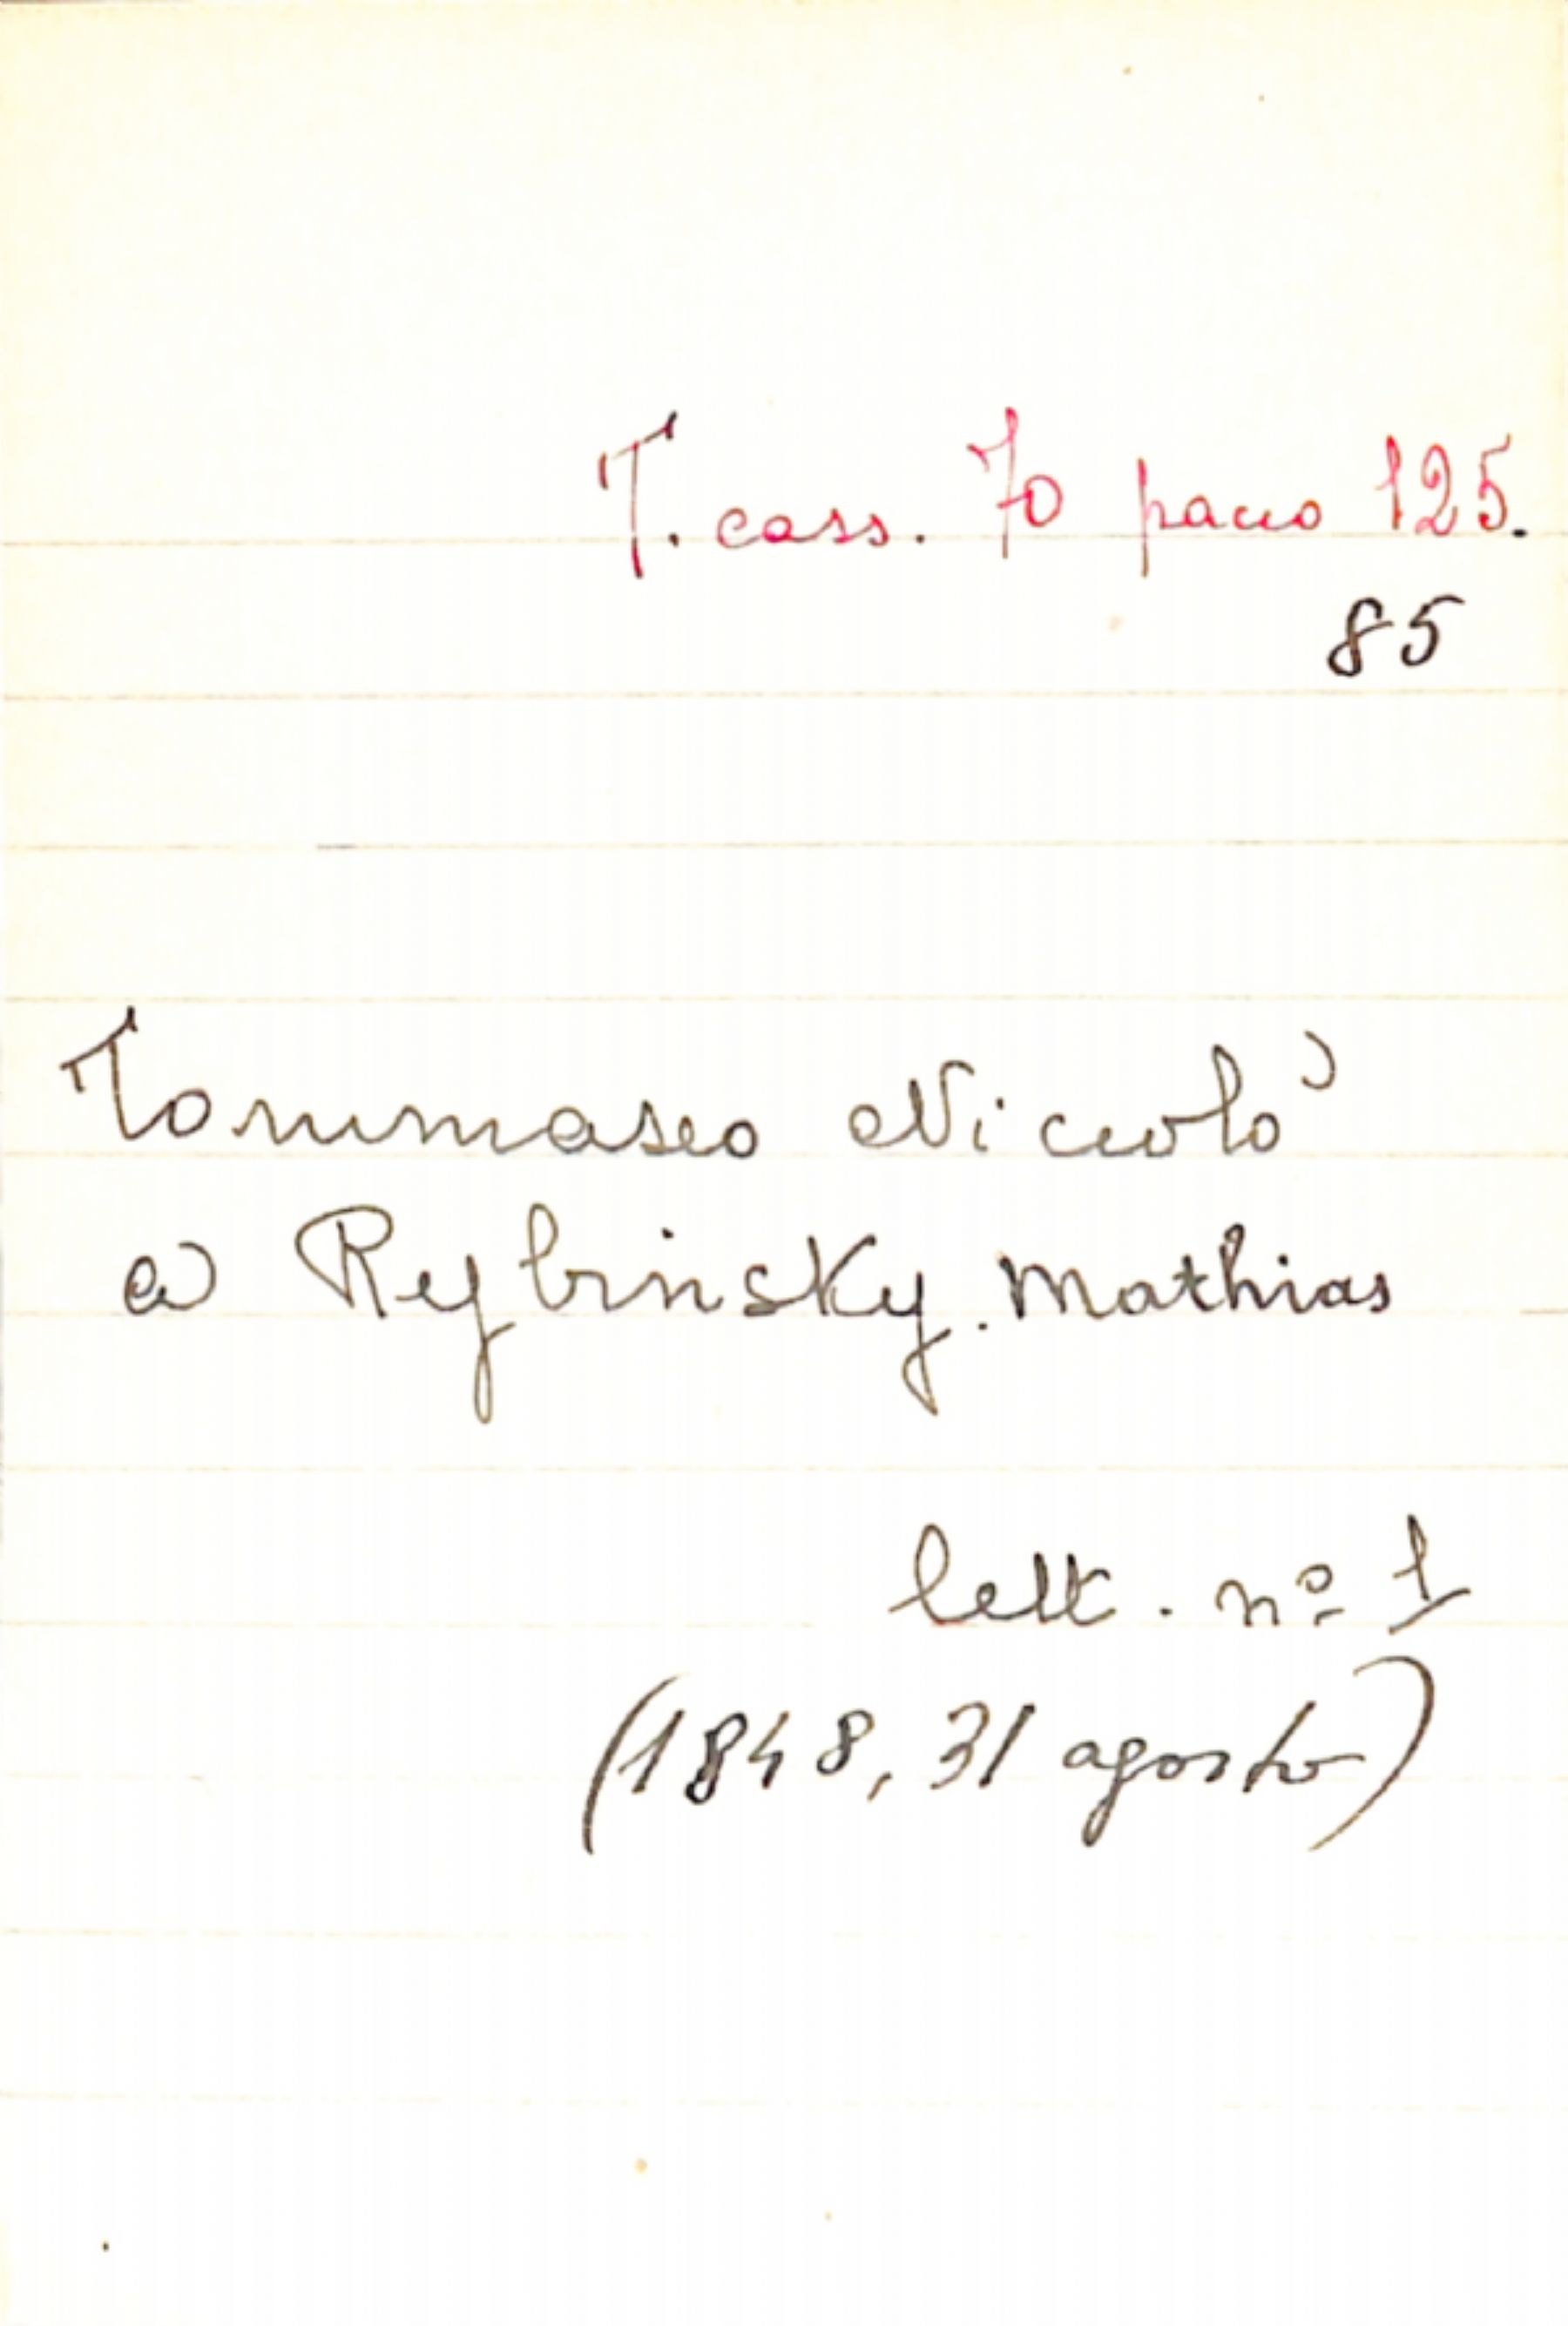 T. cass. 70 pacco 125.
85
Tommaseo Niccolò
a Rybinsky. Mathias
lett. nº 1
(1848, 31 agosto)